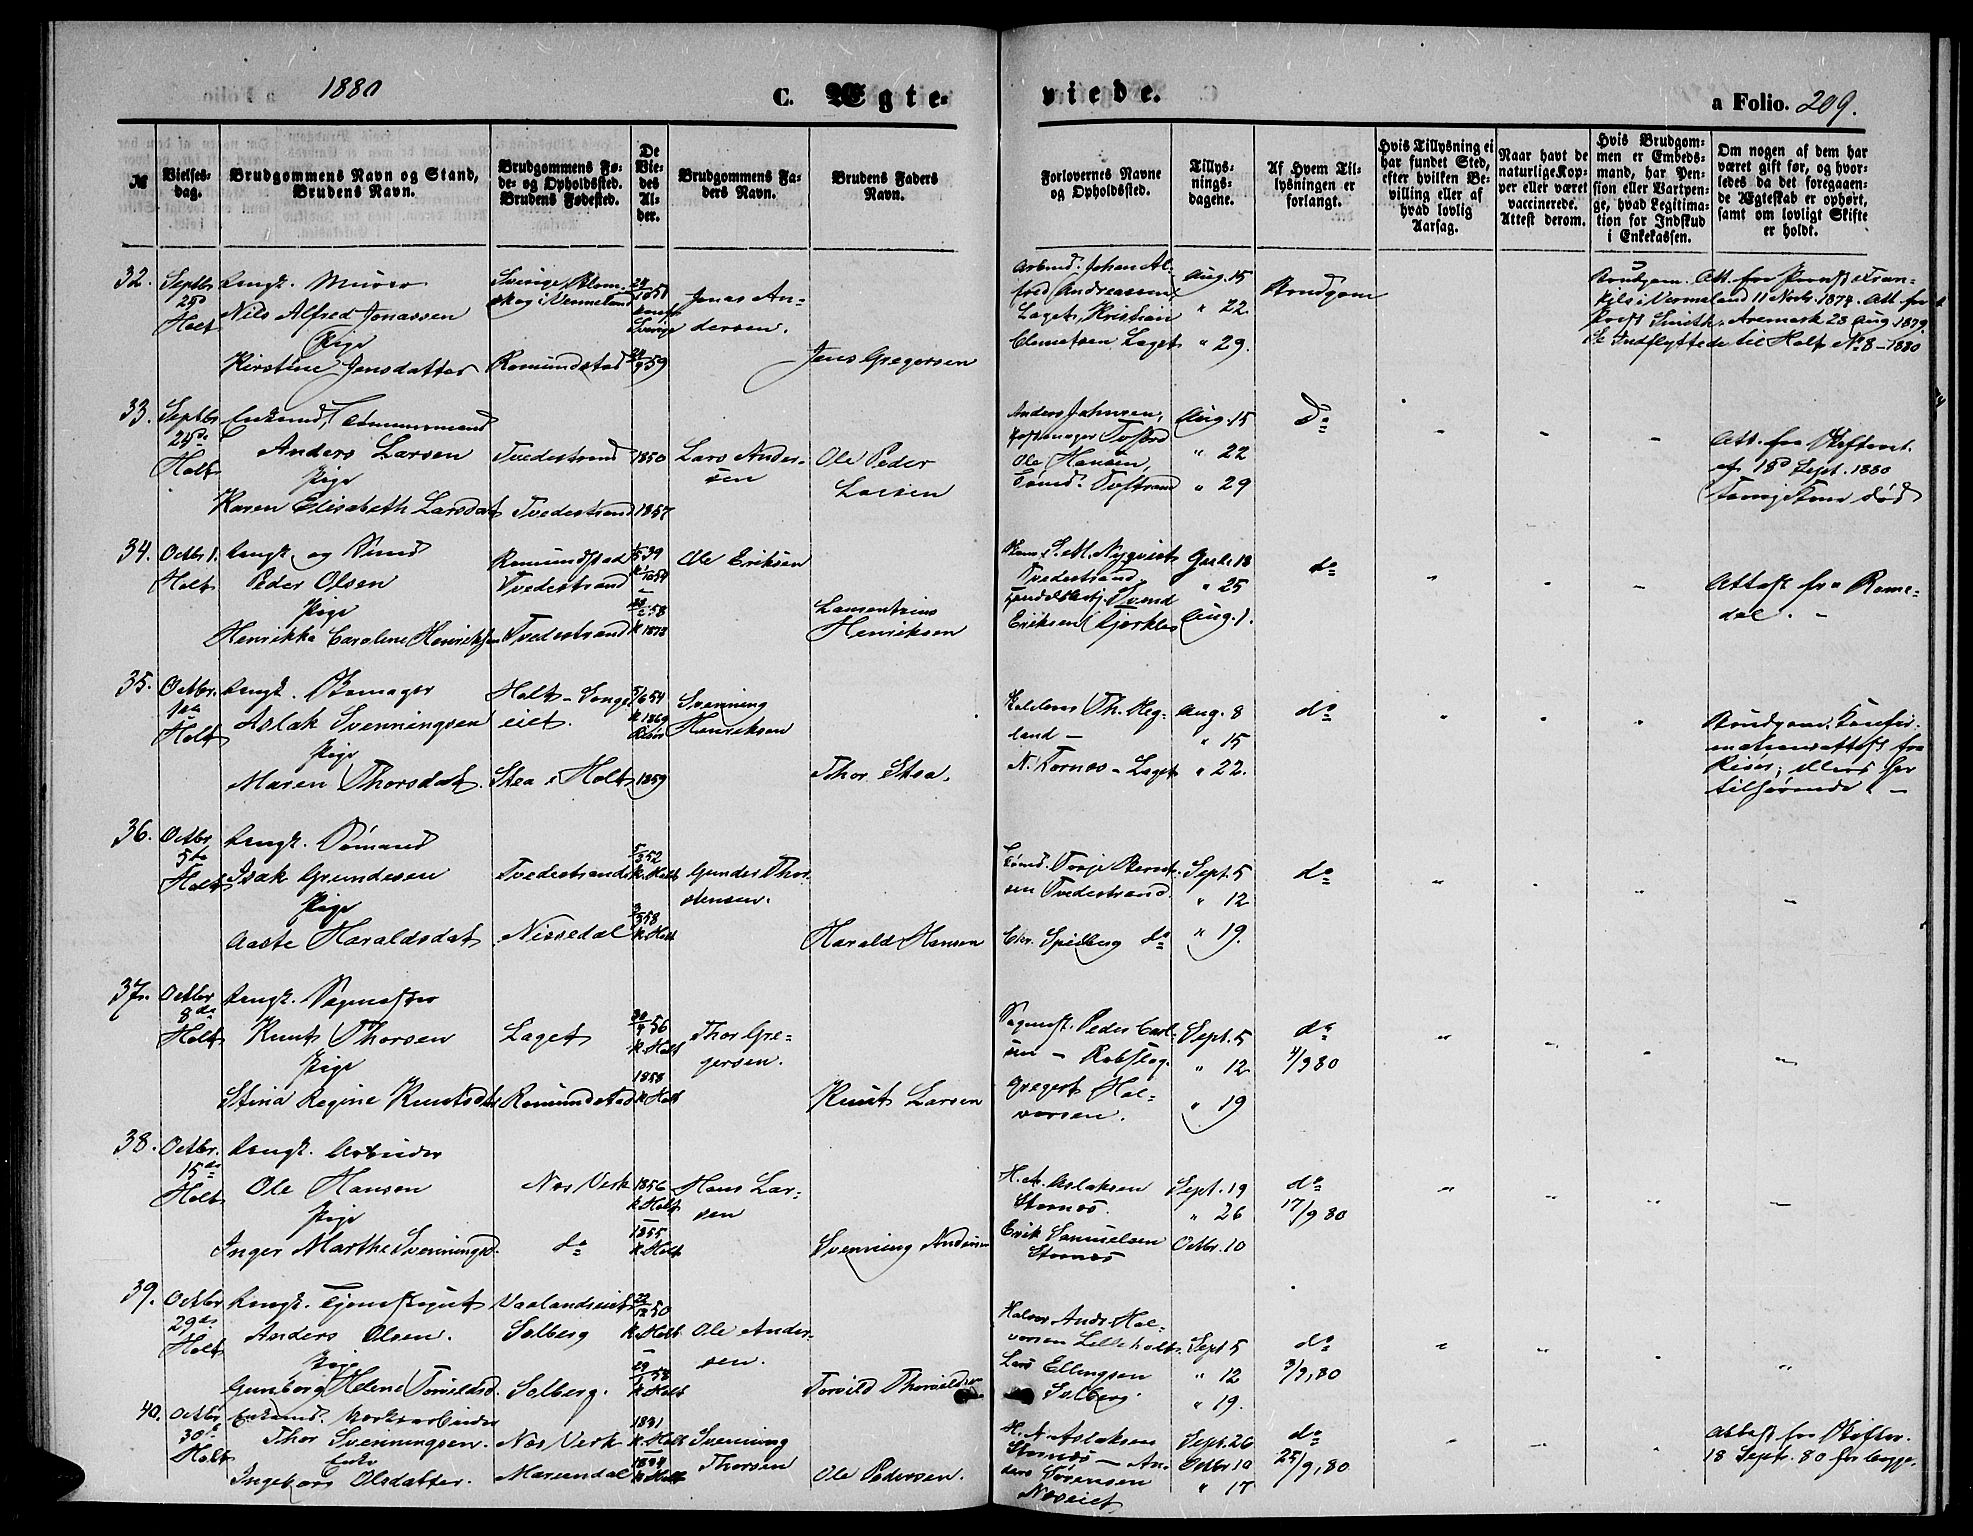 1880
C. Ægte-
viede.
a Folio. 209.
№
Vielses-
dag.
Brudgommens Navn og Stand,
Brudens Navn.
Brudgommens Fø-
de- og Opholdssted.
Brudens Fødested.
De
Vie-
des
Al-
der.
Brudgommens Fa-
ders Navn.
Brudens Faders
Navn.
Forlovernes Navne
og Opholdssted.
Tillys-
nings-
dagene.
Af Hvem Til-
lysningen er
forlangt.
Hvis Tillysning ei
har fundet Sted,
efter hvilken Be-
villing eller af
hvad lovlig
Aarsag.
Naar havt de
naturlige Kop-
per eller været
vaccinerede.
Attest derom.
Hvis Brudgom-
men er Embeds-
mand, har Pen-
sion eller Vartpen-
ge, hvad Legitima-
tion for Indskud
i Enkekassen.
Om nogen af dem har
været gift før, og hvor-
ledes da det foregaaen-
de Ægteskab er ophørt,
samt om lovligt Skifte
er holdt.
32.
Septbr
25d
Holt
Ungk. Murer
Nils Alfred Jonassen
Pige
Kirstine Jensdatter
Sverige
skog i Vermeland
Romundstad
Jonas An-
dersen.
Jens Gregersen
Arbmd. Johan Al-
fred Andreassen
Laget, Kristian
Clemetsen Laget
Aug. 15
" 22.
" 29.
Brudgom
Brudgom. Att. fra
i Vermeland 11 Novb. 1874. Att. fra
Smith, Aremark 23 Aug 1879.
Se Indflyttede til Holt No 8 - 1880
33.
Septbr
25d
Holt
Enkemd, Tømmermand
Anders Larsen
Pige
Karen Elisabeth Larsdat
Tvedestrand
Tvedestrand
1850
1857
Lars Ander-
sen
Ole Peder
Larsen
Anders Johnsen,
Ole Hansen,
Aug. 15
" 22
" 29
do
Att. fra Skifteret.
af 18d Sept. 1880
død
34.
Octbr 1.
Holt
Ungk. og
Peder Olsen
Pige
Henrikka Caroline Henriksen
Romundstad
Tvedestrand
Tvedestrand
Ole Eriksen
Henriksen
Nyqvist
Tvedestrand
Svend
Eriksen
18
" 25
Aug. 1.
do
Attest fra Rome-
dal. -
35.
Octbr.
1ste
Holt
Ungk.
Aslak Svenningsen
Pige
Maren Thorsdat.
Holt - Songe
eiet.
Stea i Holt
1859
Svenning
Henriksen
Thor Stea.
Th. Heg-
land -
N. Tornes - Laget
Aug. 8
" 15
" 22.
do
Brudgom. Confir-
mationsattest fra
Risør; ellers her
tilhørende. -
36.
Octbr
5te
Holt
Ungk. Sømand
Isak Gundersen
Pige
Aaste Haraldsdat
Tvedestrand
Nissedal
Gunder Thor-
stensen.
Harald Hansen
Tvedestrand.
Chr. Spidberg do
Sept. 5
" 12
" 19.
do
37.
Octbr
8de
Holt
Ungk. Sagmester
Knut Thorsen
Pige
Stina Regine Knutsdtr
Laget
Romundstad
1858
k. Holt
Thor Gre-
gersen.
Knut Larsen
Sagmest. Peder Carl-
sen -
Gregert Hal-
vorsen.
Sept. 5
" 12
" 19
do
4/9 80
38.
Octbr.
15de
Holt
Ungk. Arbeider
Ole Hansen
Pige
Inger Marthe Svenningsd.
Nes Verk
do
1856
k. Holt
1855
k. Holt
Hans Lar-
sen
Svenning Andersen
H. A. Aslaksen
Stornes.
Erik Samuelsen
Stornes
Sept. 19
" 26
Octbr. 10
do
17/9 80
39.
Octbr
29de
Holt
Ungk. Tjenestegut
Anders Olsen.
Pige
Gunborg Helene Torvildsd.
Vaalandseiet
Solberg
Solberg.
Ole Ander-
sen.
Torvild Thorvildsen
Halvor Ands Hal-
vorsen Lilleholt.
Lars Ellingsen
Solberg.
Sept 5
" 12
" 19.
do
3/9, 80
40.
Octbr
30d
Holt
Enkemd. Verksarbeider
Thor Svenningsen.
Enke
Ingeborg Olsdatter.
Nes Verk
Morendal
k. Holt
k. Holt
Svenning
Thorsen
Ole Pedersen.
H. A. Aslaksen
Stornes - An-
ders Sørensen
Neseiet
Sept. 26
Octbr 10
" 17
do
25/9, 80
Attest fra Skifter.
18 Septr. 80 for begge.